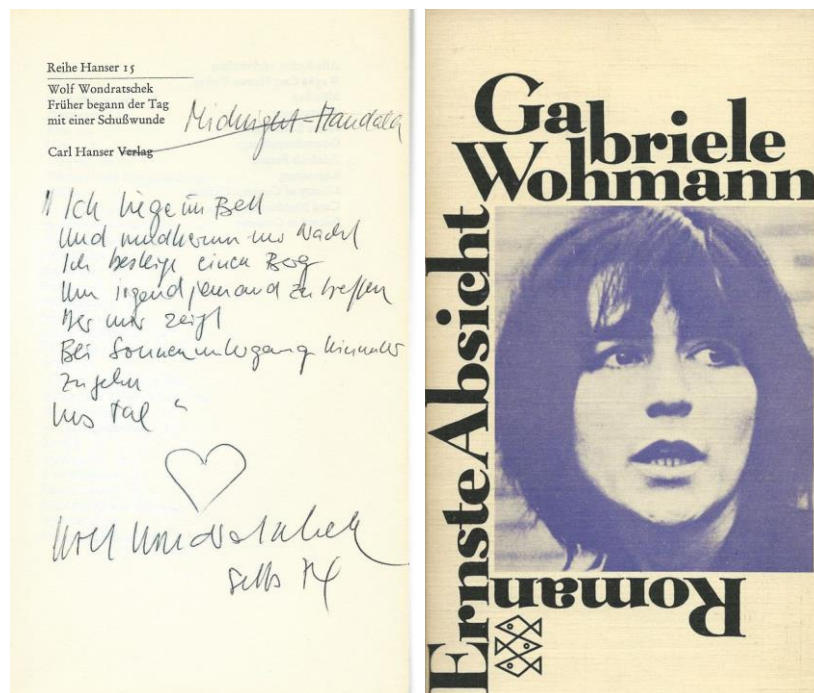 Reihe Hanser 15
Wolf Wondratschek
Früher begann der Tag
mit einer Schußwunde
Midnight-Mandala
Carl Hanser Verlag
"Ich liege im Bett
Und rundherum nur Nacht
Ich besteige einen Berg
Um irgend jemand zu treffen
Der mir zeigt
Bei Sonnenuntergang hinunter
zu gehn
ins Tal"
Wolf Wondratschek
Gabriele
Wohmann
Ernste Absicht
Roman